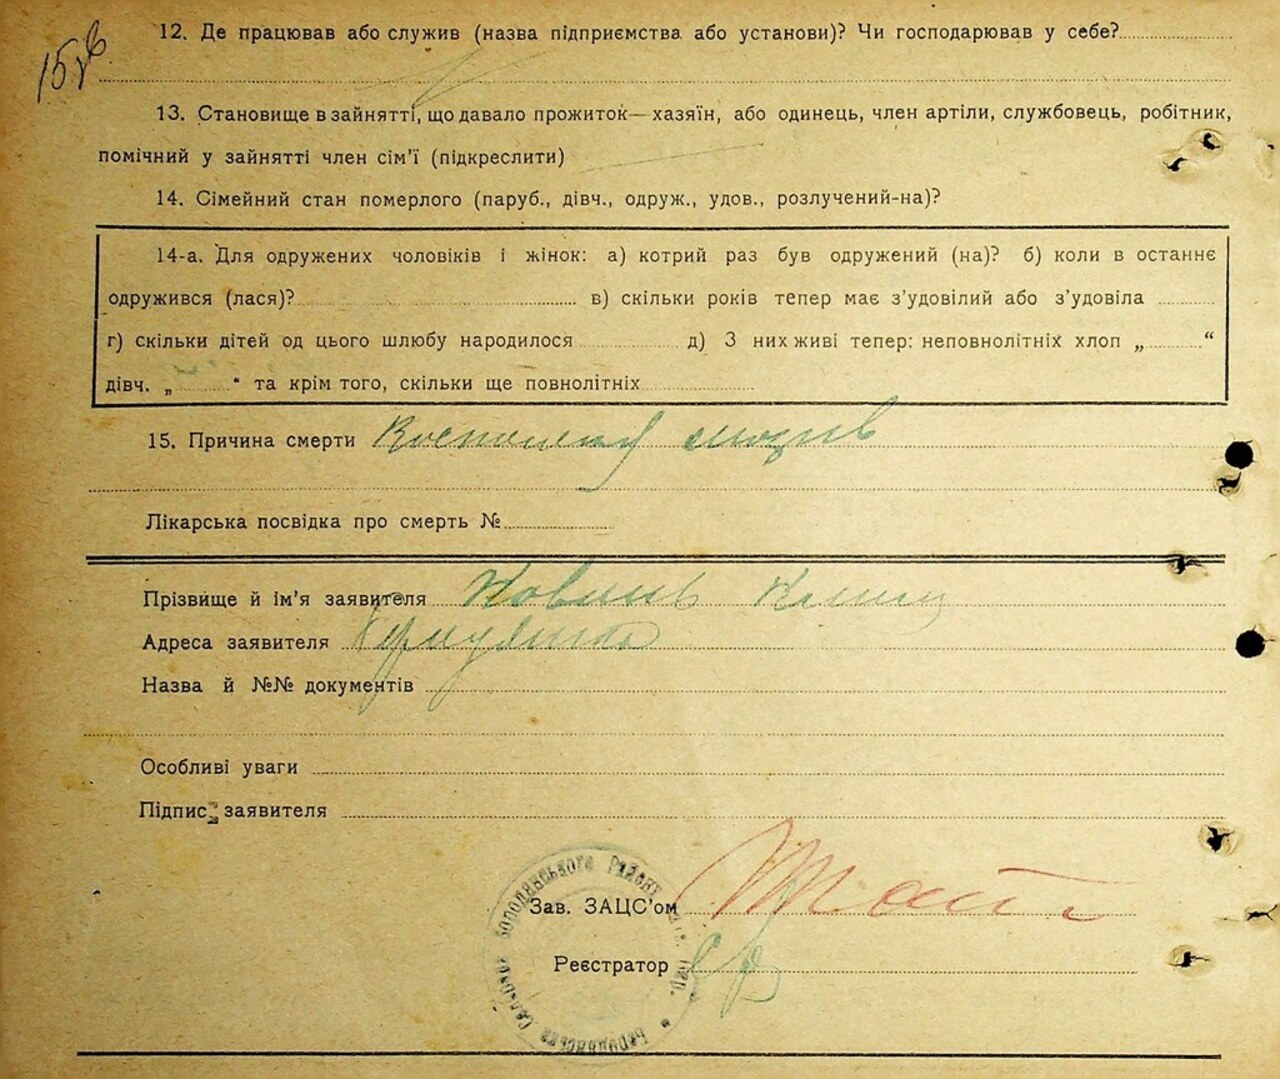 15 зв
12. Де працював або служив (назва підприємства або установи)? Чи господарював у себе?
13. Становище в зайнятті, що давало прожиток — хазяїн, або одинець, член артіли, службовець, робітник,
помічний у зайнятті член сім’ї (підкреслити)
14. Сімейний стан померлого (паруб., дівч., одруж., удов., розлучений-на)?
14-а. Для одружених чоловіків і жінок: а) котрий раз був одружений (на)? б) коли в останнє
одружився (лася)? в) скільки років тепер має з’удовілий або з’удовіла
г) скільки дітей од цього шлюбу народилося д) З них живі тепер: неповнолітніх хлоп „ “
дівч. „ “ та крім того, скільки ще повнолітніх
15. Причина смерти
Лікарська посвідка про смерть №
Прізвище й ім’я заявителя
Адреса заявителя
Назва й №№ документів
Особливі уваги
Підпис заявителя
Зав. ЗАЦС’ом
Реєстратор
Бородянського Району